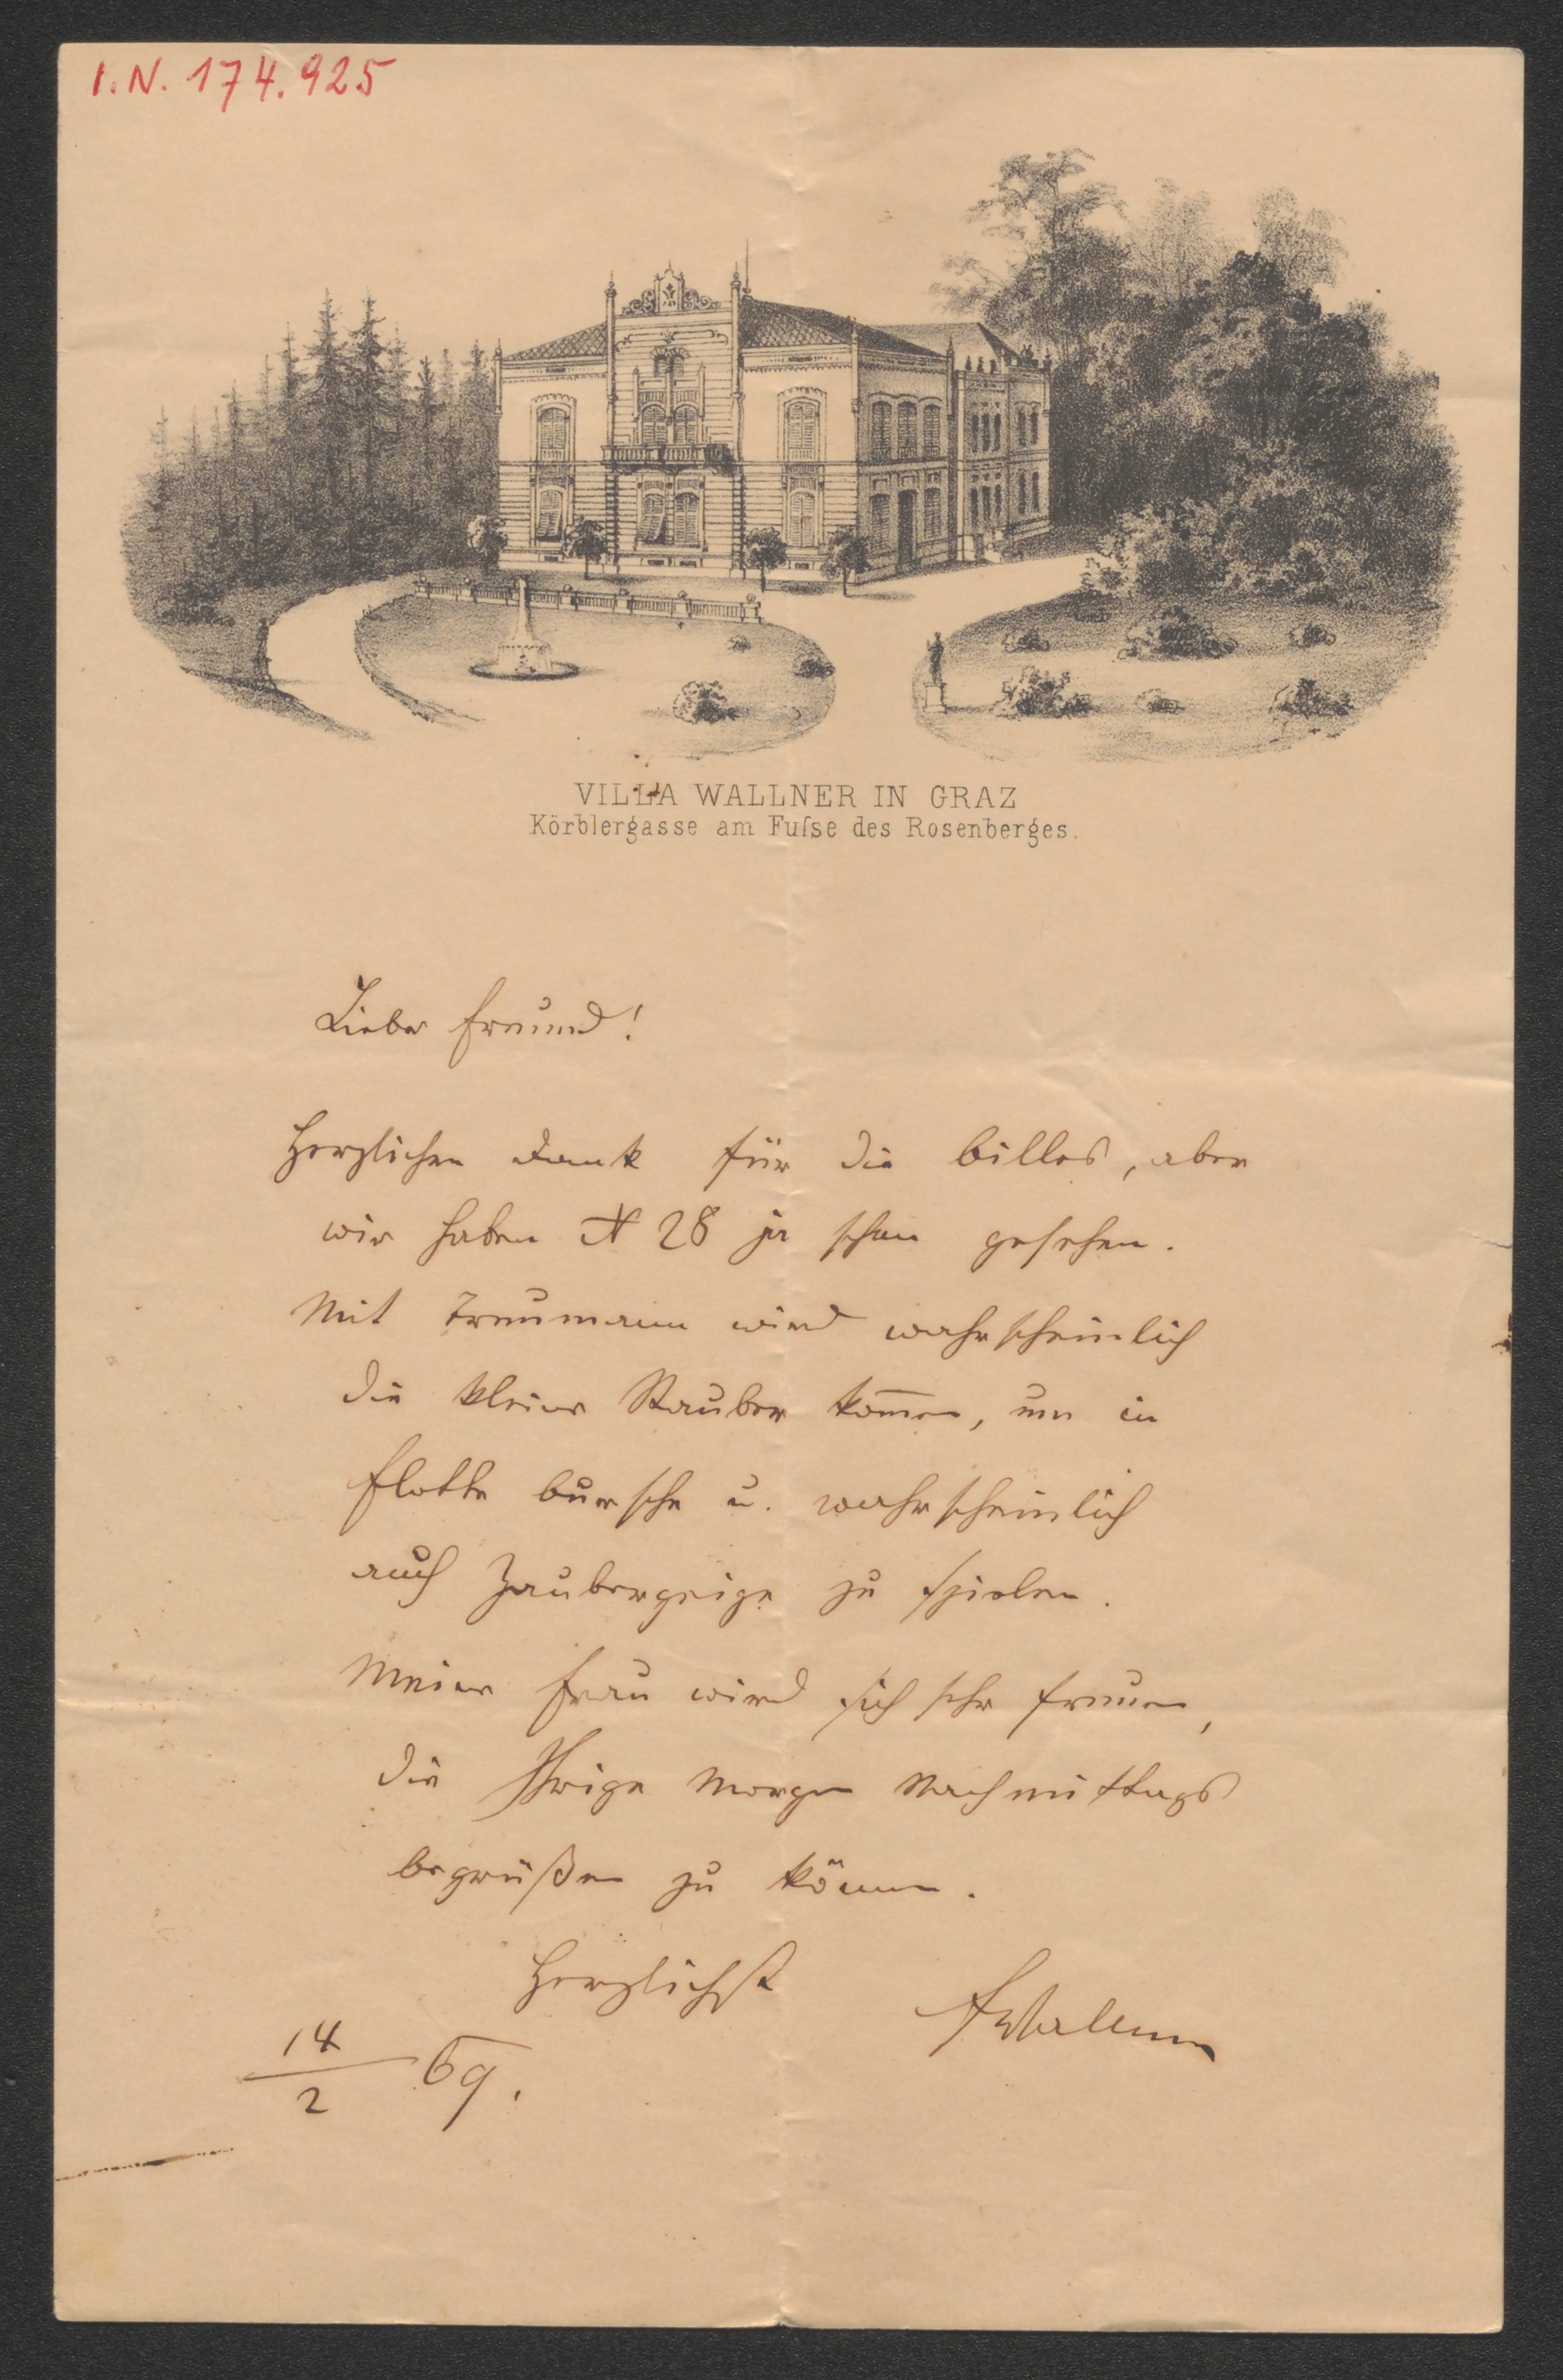 I. N. 174.925
VILLA WALLNER IN GRAZ
Körblergasse am Fuſse des Rosenberges.
Lieber Freund!
Herzlichen Dank für die Billes, aber
wir haben N 28 ja schon gesehen.
Mit Treumann wird wahrscheinlich
die kleine Stauber kom̅en, um in
Flotte Bursche u. wahrscheinlich
auch Zaubergeige zu spielen.
Meine Frau wird sich sehr freuen,
die Ihrige Morgen Nachmittags
begrüßen zu können.
Herzlichst
FWallner
14/2 69.